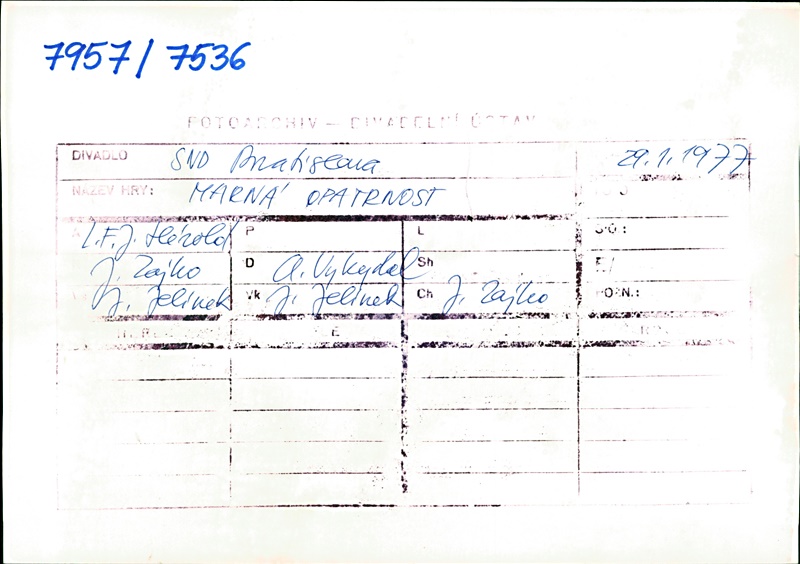 7957/7536
FOTOARCHIV – DIVADELNÍ ÚSTAV
DIVADLO SND Bratislava 29.1.1977
NÁZEV HRY: MARNÁ OPATRNOST
L.F.J. Hérold P L
J. Zajko D A. Vykydal Sh
J. Jelínek Vk J. Jelínek Ch J. Zajko POZN.: